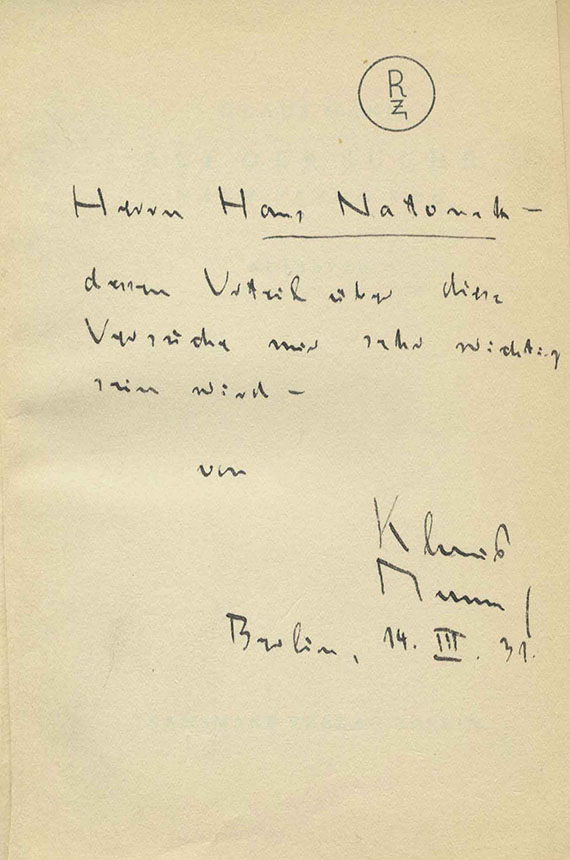 R
Z
Herrn Hans Natonek –
dessen Urteil über diese
Versuche mir sehr wichtig
sein wird –
von
Klaus
Mann
Berlin, 14. III. 31.